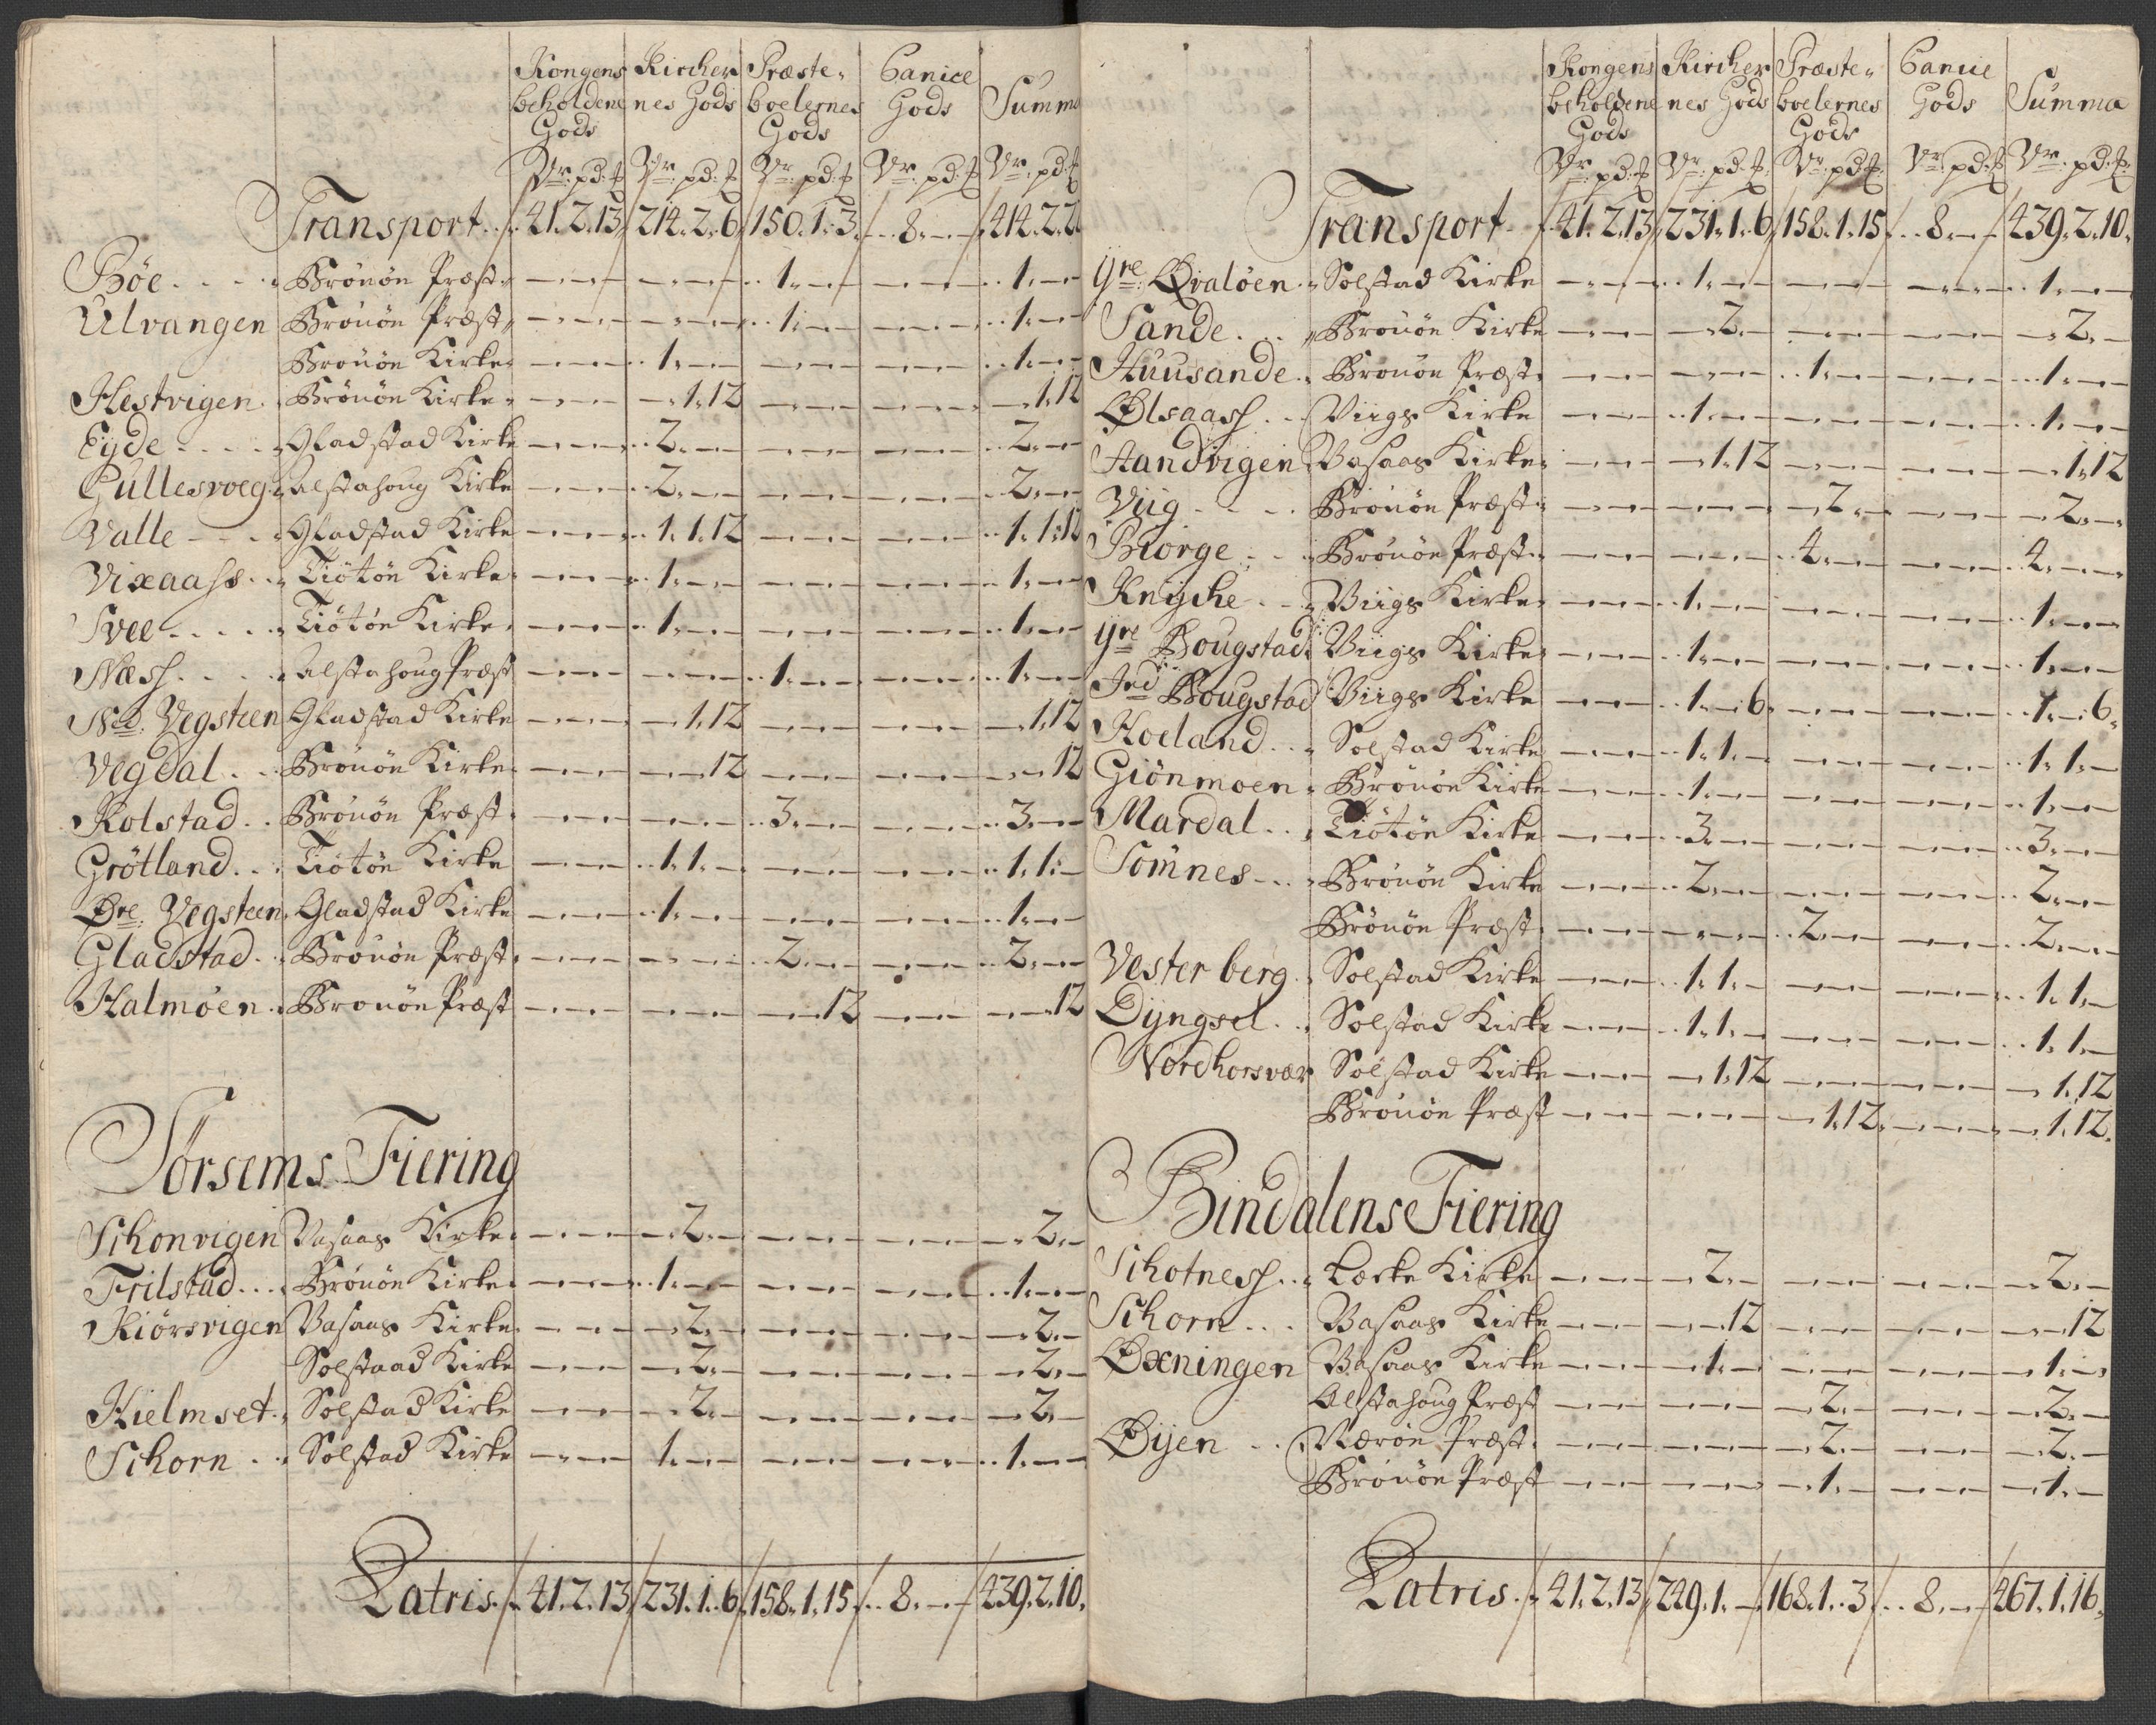 Kongens Kircher Præste- Canice
beholdene nes Gods boelernes Gods Summa
Gods Gods
Vr. pd. Vr. pd. Vr. pd. Vr. pd. Vr. pd.
Transport 41. 2. 13 214. 2. 6 150. 1. 3 8. 414. 2. 22
Böe Brönön Præst 1. 1.
Ulvangen Brönön Præst 1. 1.
Brönön Kirke 1. 1.
Hestvigen Brönön Kirke 1. 12 1. 12
Eyde Gladstad Kirke 2. 2.
Gullesvoeg Alstahoug Kirke 2. 2.
Valle Gladstad Kirke 1. 1. 12 1. 1. 12
Vixaass Tiötön Kirke 1. 1.
Svee Tiötön Kirke 1. 1.
Næss Alstahoug Præst 1. 1.
Ned. Vegsteen Gladstad Kirke 1. 12 1. 12
Vegdal Brönön Kirke 12 12
Kolstad Brönön Præst 3. 3.
Grötland Tiötön Kirke 1. 1. 1. 1.
Øre. Vegsteen Gladstad Kirke 1. 1.
Gladstad Brönön Præst 2. 2.
Halmöen Brönön Præst 12 12
Sörsems Fiering
Schonvigen Vasaas Kirke 2. 2.
Frilstad Brönön Kirke 1. 1.
Kiörsvigen Vasaas Kirke 2. 2.
Solstaad Kirke 2. 2.
Kielmset Solstad Kirke 2. 2.
Schorn Solstad Kirke 1. 1.
Latris 41. 2. 13 231. 1. 6 158. 1. 15 8. 439. 2. 10.
Kongens Kircher Præste- Canice
beholdene nes Gods boelernes Gods Summa
Gods Gods
Vr. pd. Vr. pd. Vr. pd. Vr. pd. Vr. pd.
Transport 41. 2. 13 231. 1. 6 158. 1. 15 8. 439. 2. 10.
Yre. Qvalöen Solstad Kirke 1. 1.
Sande Brönön Kirke 2. 2.
Huusande Brönön Præst 1. 1.
Ølsaass Viigs Kirke 1. 1.
Aandvigen Vasaas Kirke 1. 12 1. 12
Viig Brönön Præst 2. 2.
Biorge Brönön Præst 4. 4.
Knyche Viigs Kirke 1. 1.
Yre Bougstad Viigs Kirke 1. 1.
Ind Bougstad Viigs Kirke 1. 6. 1. 6.
Hoeland Solstad Kirke 1. 1. 1. 1.
Giönmoen Brönön Kirke 1. 1.
Mardal Tiötön Kirke 3. 3.
Somnes Brönön Kirke 2. 2.
Brönön Præst 2. 2.
Vesterberg Solstad Kirke 1. 1. 1. 1.
Dyngsel Solstad Kirke 1. 1. 1. 1.
Nordhorsvær Solstad Kirke 1. 12 1. 12
Brönön Præst 1. 12. 1. 12.
Bindalens Fiering
Schotness Lecke Kirke 2. 2.
Schorn Vasaas Kirke 12 12
Øxningen Vasaas Kirke 1. 1.
Alstahoug Præst 2. 2.
Øyen Nærön Præst 2. 2.
Brönön Præst 1. 1.
Latris 41. 2. 13 249. 1. 168. 1. 3 8. 467. 1. 16.